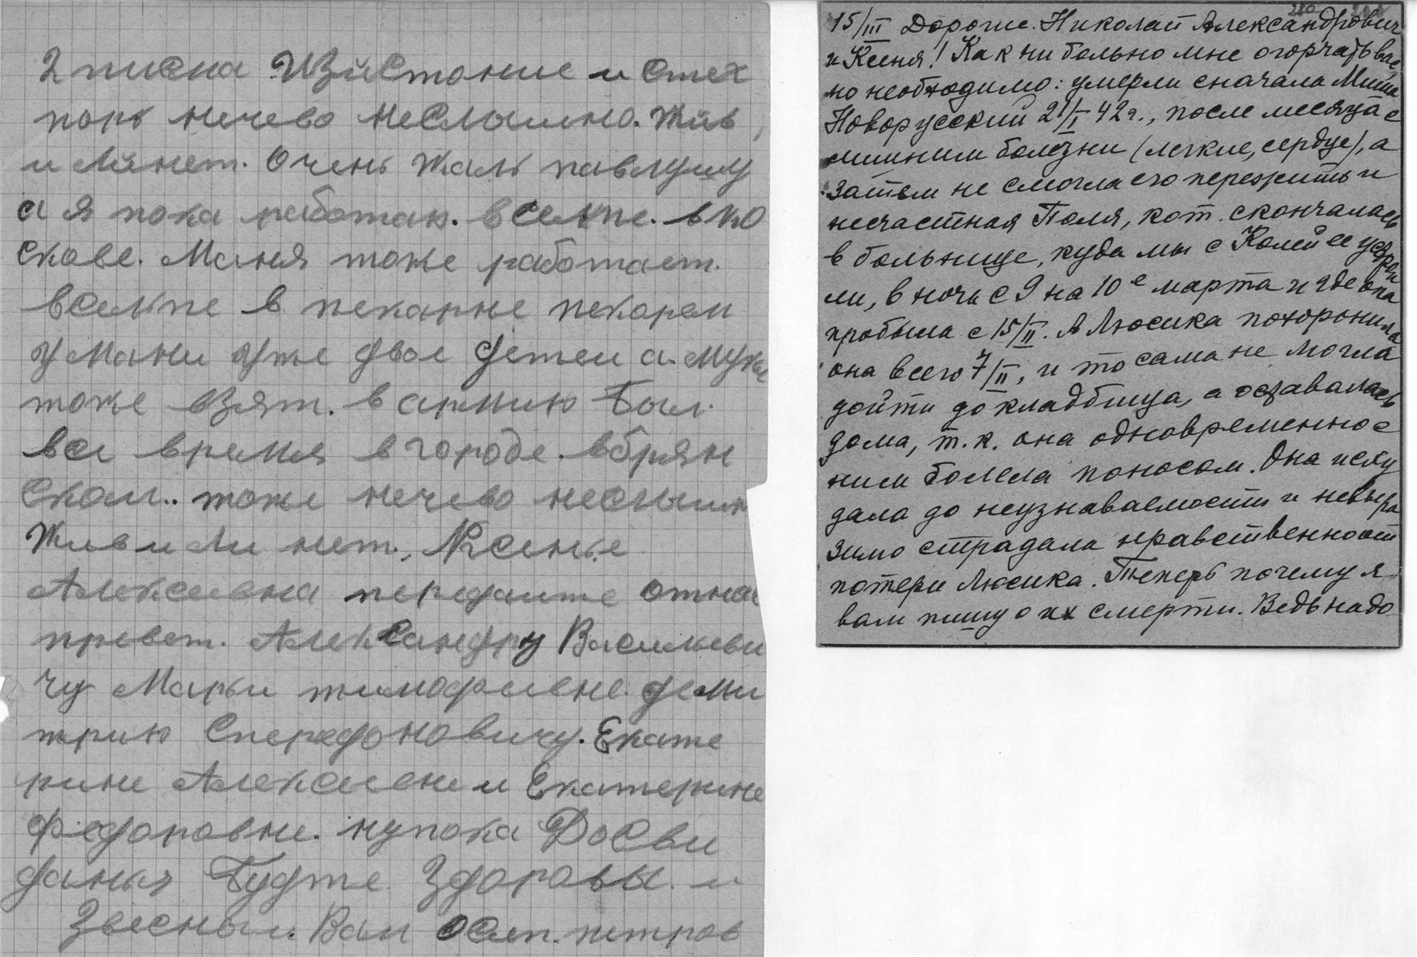 2 писма Изйстоние и стех
порь нечево неслышно. Жив
и ли нет. Очень жаль павлушу
а я пока работаю. в селпе. в по
скове. Маня тоже работает.
в селпе в пекарне пекарем
у Мани уже двое детей а. мужа
тоже взят. в армию Был.
все время в городе. вбрян
ском.. тоже нечево неслышн
Жив и ли нет.
Алексеевна передайте отнас
превет. Александру Васильеви
чу Марьи тимофиевне. деми
трию Спередоновичу. Екате
рине Алексиевне и Екатерине
Федоровне. ну пока Досви
даныя Будте Здоровы. и
Звесный. Вам осип. петров
15/III Дорогие Николай Александрович
и Ксеня! Как ни больно мне огорчать вас,
но необходимо: умерли сначала Миша
Новорусский 21/I 42 г., после месяца с
лишним болезни (легкие, сердце), а
затем не смогла его пережить и
несчастная Поля, кот. скончалась
в больнице, куда мы с Колей ее устрои
ли, в ночь с 9 на 10е марта и где она
пробыла с 15/II. А Люсика похоронила
она всего 7/II, и то сама не могла
дойти до кладбища, а оставалась
дома, т.к. она одновременно с
ним болела поносом. Она исху
дала до неузнаваемости и невыра
зимо страдала нравственно от
потери Люсика. Теперь почему я
вам пишу о их смерти. Ведь надо